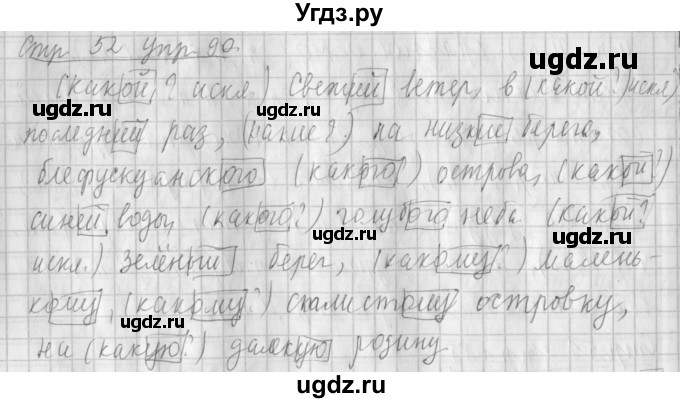 Угдз.ру
Стр. 52 упр. 90.
(какой? искл.) Свежий ветер, в (какой? искл.)
последний раз, (какие?) на низкие берега,
блефускуанского (какого?) острова, (какой?)
синей воды, (какого?) голубого неба (какой?
искл.) зелёный берег, (какому?) малень-
кому, (какому?) скалистому островку,
на (какую?) далёкую родину.
ugdz.ru
ugdz.ru
ugdz.ru
ugdz.ru
ugdz.ru
ugdz.ru
ugdz.ru
ugdz.ru
ugdz.ru
ugdz.ru
ugdz.ru
ugdz.ru
ugdz.ru